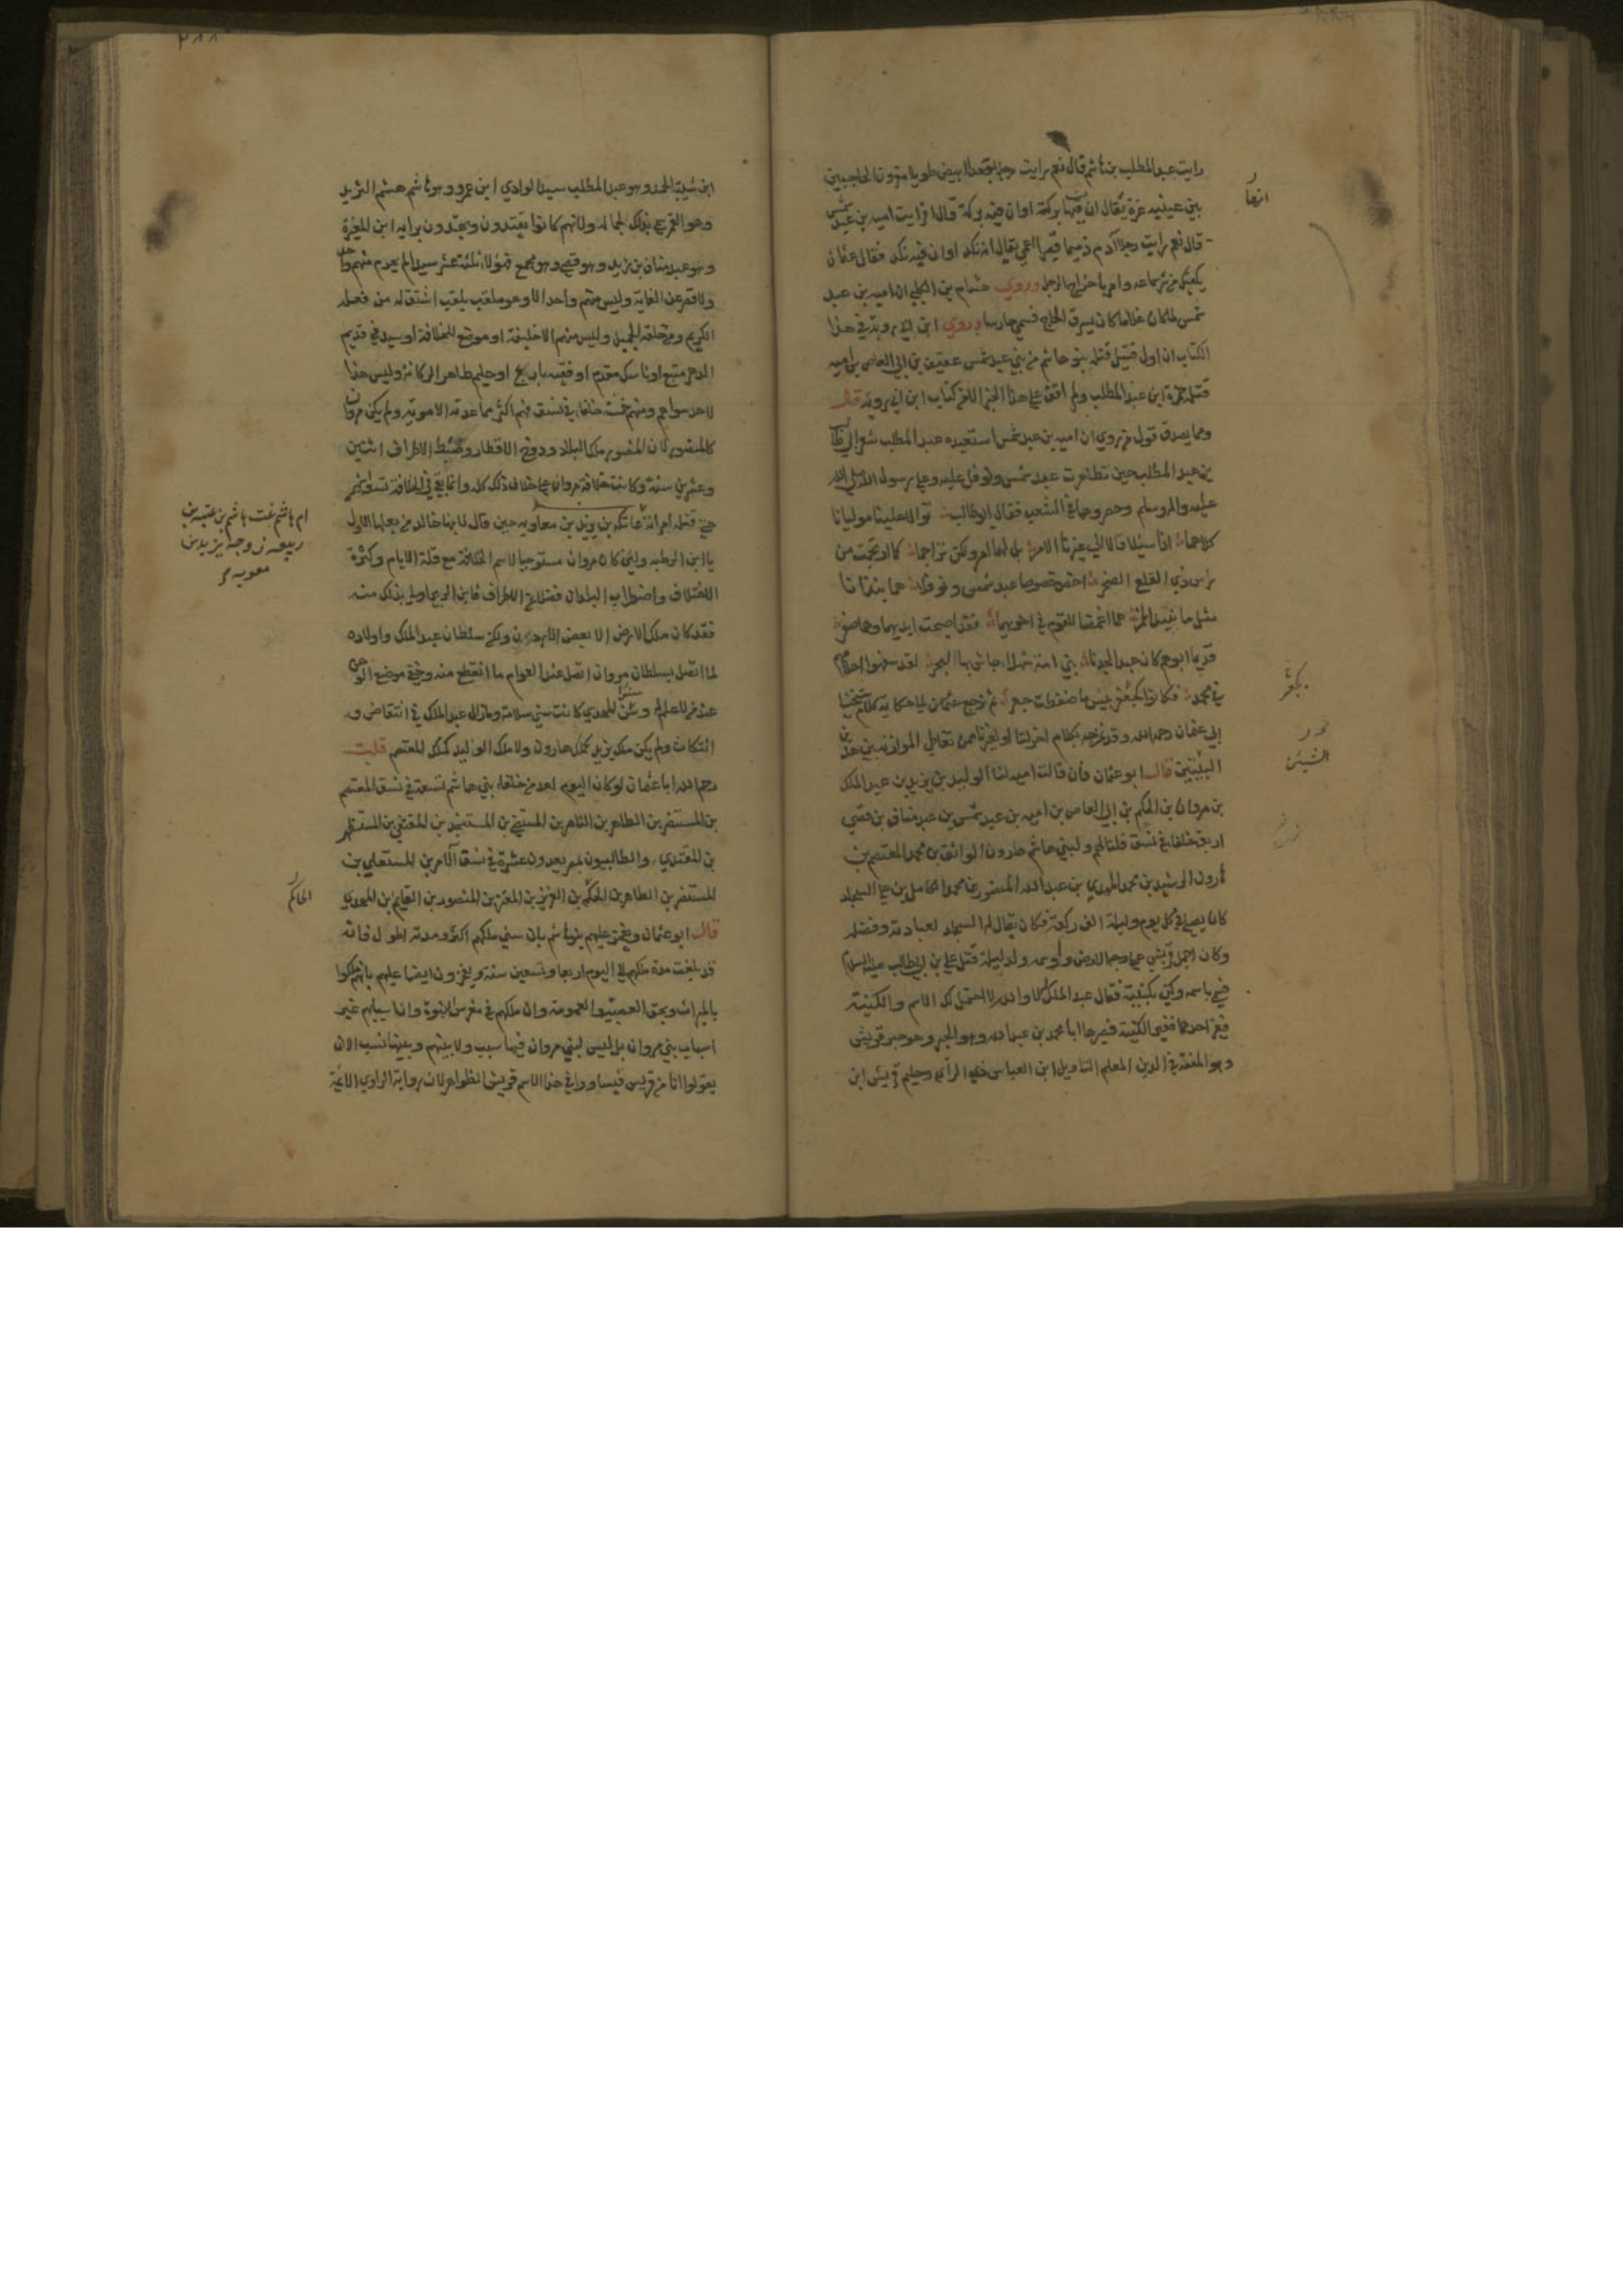 رايت عبد المطلب بن هاشم قال نعم رايت رجلا قعدا ابيض طويلا مقرون الحاجبين
بين عينيه غرة يقال ان فيها بركة او ان فيه بركة قال افرايت اميه بن عبد شمس
قال نعم رايت رجلا آدم ذميما قصيرا اعمى يقال انه نكد او ان فيه نكد فقال عثمان
يكفيك من شر سماعه وامر باخراج الرجل وروي هشام بن الكلبي ان اميه بن عبد
شمس لما كان غلاما كان يسرق الحاج فسمي حارسا وروي ابن ابي رويه في هذا
الكتاب ان اول قتيل قتله بنو هاشم من بني عبد شمس عفيف بن ابي العاص بن اميه
قتله حمزة ابن عبد المطلب ولم اقف على هذا الخبر الا في كتاب ابن ابي رويه قال
ومما يصدق قول من روي ان اميه بن عبد شمس استعبده عبد المطلب شعر ابي طالب
بن عبد المطلب حين تظاهرت عبد شمس ونوفل عليه وعلى رسول الله صلى الله
عليه واله وسلم وحصروهما في الشعب فقال ابو طالب توالا علينا موليانا
كلاهما اذا سئلا قالا الي غيرنا الامر بلى لهما امر ولكن تراجما كما ارتجمت من
راس ذي القلع الصخر اخص خصوصا عبد شمس ونوفلا هما نبذانا
مثل ما نبذ الخمر هما اغمضا للقوم في اخويهما فقد اصبحت ايديهما وهما صفر
قديما ابوهم كان عبدا لجدنا بني امة شهلاء جاش بها البحر لقد سفهوا احلامهم
في محمد فكانوا كجعفر بئس ما صنعت جعر ثم نرجع الي حكاية كلام شيخنا
ابي عثمان رحمه الله وقد نمزجه بكلام اخر لنا او لغيرنا ممن تعاطى الموازنه بين هذين
البيتين قال ابو عثمان فان قالت اميه لنا الوليد بن يزيد بن عبد الملك
بن مروان بن الحكم بن ابي العاص بن اميه بن عبد شمس بن عبد مناف بن قصي
اربعة خلفاء في نسق قلنا لهم ولبني هاشم هارون الواثق بن محمد المعتصم بن
هارون الرشيد بن محمد المهدي بن عبد الله المنصور بن محمد الكامل بن علي السجاد
كان يصلي في كل يوم وليلة الف ركعة فكان يقال له السجاد لعبادته وفضله
وكان اجمل قريش على وجه الارض واوسمه ولد ليلة قتل علي بن ابي طالب عليه السلام
فسمي باسمه وكني بكنيته فقال عبد الملك لا والله لا احتمل لك الاسم والكنية
فغير احدهما فغير الكنية فصيرها ابا محمد بن عبد الله وهو البحر وهو حبر قريش
وهو المفقه في الدين المعلم التاويل ابن العباس ذي الرأي وحليم قريش ابن
انها
الشيئين
ابن شيبة الحمد وهو عبد المطلب سيد الوادي ابن عمرو وهو هاشم هشم الثريد
وهو القمر سمي بذلك لجماله ولانهم كانوا يقتدون ويهتدون برايه ابن المغيرة
وهو عبد مناف بن زيد وهو قصي وهو مجمع فهؤلاء ثلثة عشر سيدا لم يحرم منهم واحد
ولا قصر عن الغاية وليس منهم واحد الا وهو ملقب بلقب اشتق له من فعله
الكريم ومن خلقه الجميل وليس منهم الا خليفة او موضع للخلافة او سيد في قديم
الدهر متبع او ناسك مقدم او فقيه بارع او حليم ظاهر الركانة وليس هذا
لاحد سواهم ومنهم خمسة خلفاء في نسق منهم اكثر مما عدته الامويه ولم يكن مروان
كالمنصور لان المنصور ملك البلاد ودوخ الاقطار وضبط الاطراف اثنتين
وعشرين سنة وكانت خلافة مروان على خلاف ذلك كله وانما بقي في الخلافة تسعة اشهر
حتى قتلته امراته عاتكه بن يزيد بن معاويه حين قال لابنها خالد من بعلها الاول
يا ابن الرطبه ولئن كان مروان مستوجبا لاسم الخلافة مع قلة الايام وكثرة
الاختلاف واضطراب البلدان فضلا عن الاطراف فابن الزبير اولى بذلك منه
فقد كان ملك الارض الا بعض الاردن ولكن سلطان عبد الملك واولاده
لما اتصل بسلطان مروان اتصل عند العوام ما انقطع منه وخفي موضع الوهن
عند من لا علم له وسنو المهدي كانت سني سلامة وما زال عبد الملك في انتقاض و
انتكاث ولم يكن ملك يزيد كملك هارون ولا ملك الوليد كملك المعتصم قلت
رحم الله ابا عثمان لو كان اليوم لعد من خلفاء بني هاشم تسعة في نسق المستعصم
بن المستنصر بن الظاهر بن الناصر بن المستضي بن المستنجد بن المقتفي بن المستظهر
بن المقتدي والطالبيون بمصر يعدون عشرة في نسق الآمر بن المستعلي بن
المستنصر بن الظاهر بن الحاكم بن العزيز بن المعز بن المنصور بن القايم بن المهدي
قال ابو عثمان ويفخر عليهم بنو هاشم بان سني ملكهم اكثر ومدته اطول فانه
قد بلغت مدة ملكهم الى اليوم اربعا وتسعين سنة ويفخرون ايضا عليهم بانهم ملكوا
بالميراث وبحق العصبية والعمومه وان ملكهم في مغرس النبوة وان اسبابهم غير
اسباب بني مروان بل ليس لبني مروان فيها سبب ولا بينهم وبينها نسب الا ان
يقولوا انا من قريش فيساووا في هذا الاسم قريش الظواهر لان رواية الراوي الائمة
ام هاشم بنت هاشم بن عتبه بن
ربيعه زوجه يزيد بن
معويه
الحاكم